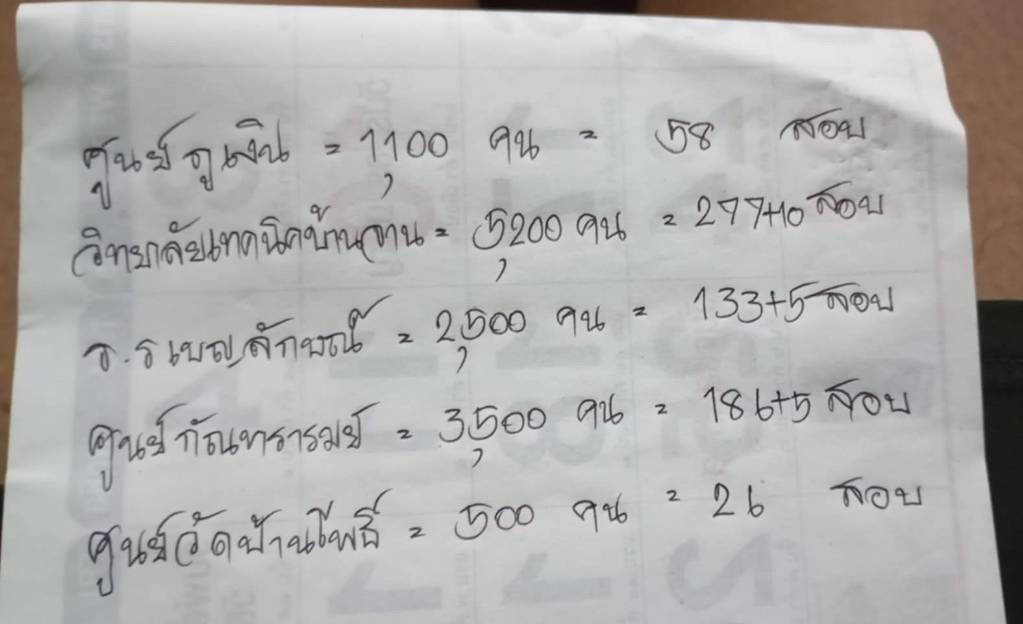 ศูนย์ภูเงิน = 1,100 คน = 58 สอบ
วิทยาลัยเทคนิคบ้านจาน = 5,200 คน = 277+10 สอบ
ร.ร เบญลักษณ์ = 2,500 คน = 133+5 สอบ
ศูนย์กัณทรารมย์ = 3,500 คน = 186+5 สอบ
ศูนย์วัดบ้านโพธิ์ = 500 คน = 26 สอบ